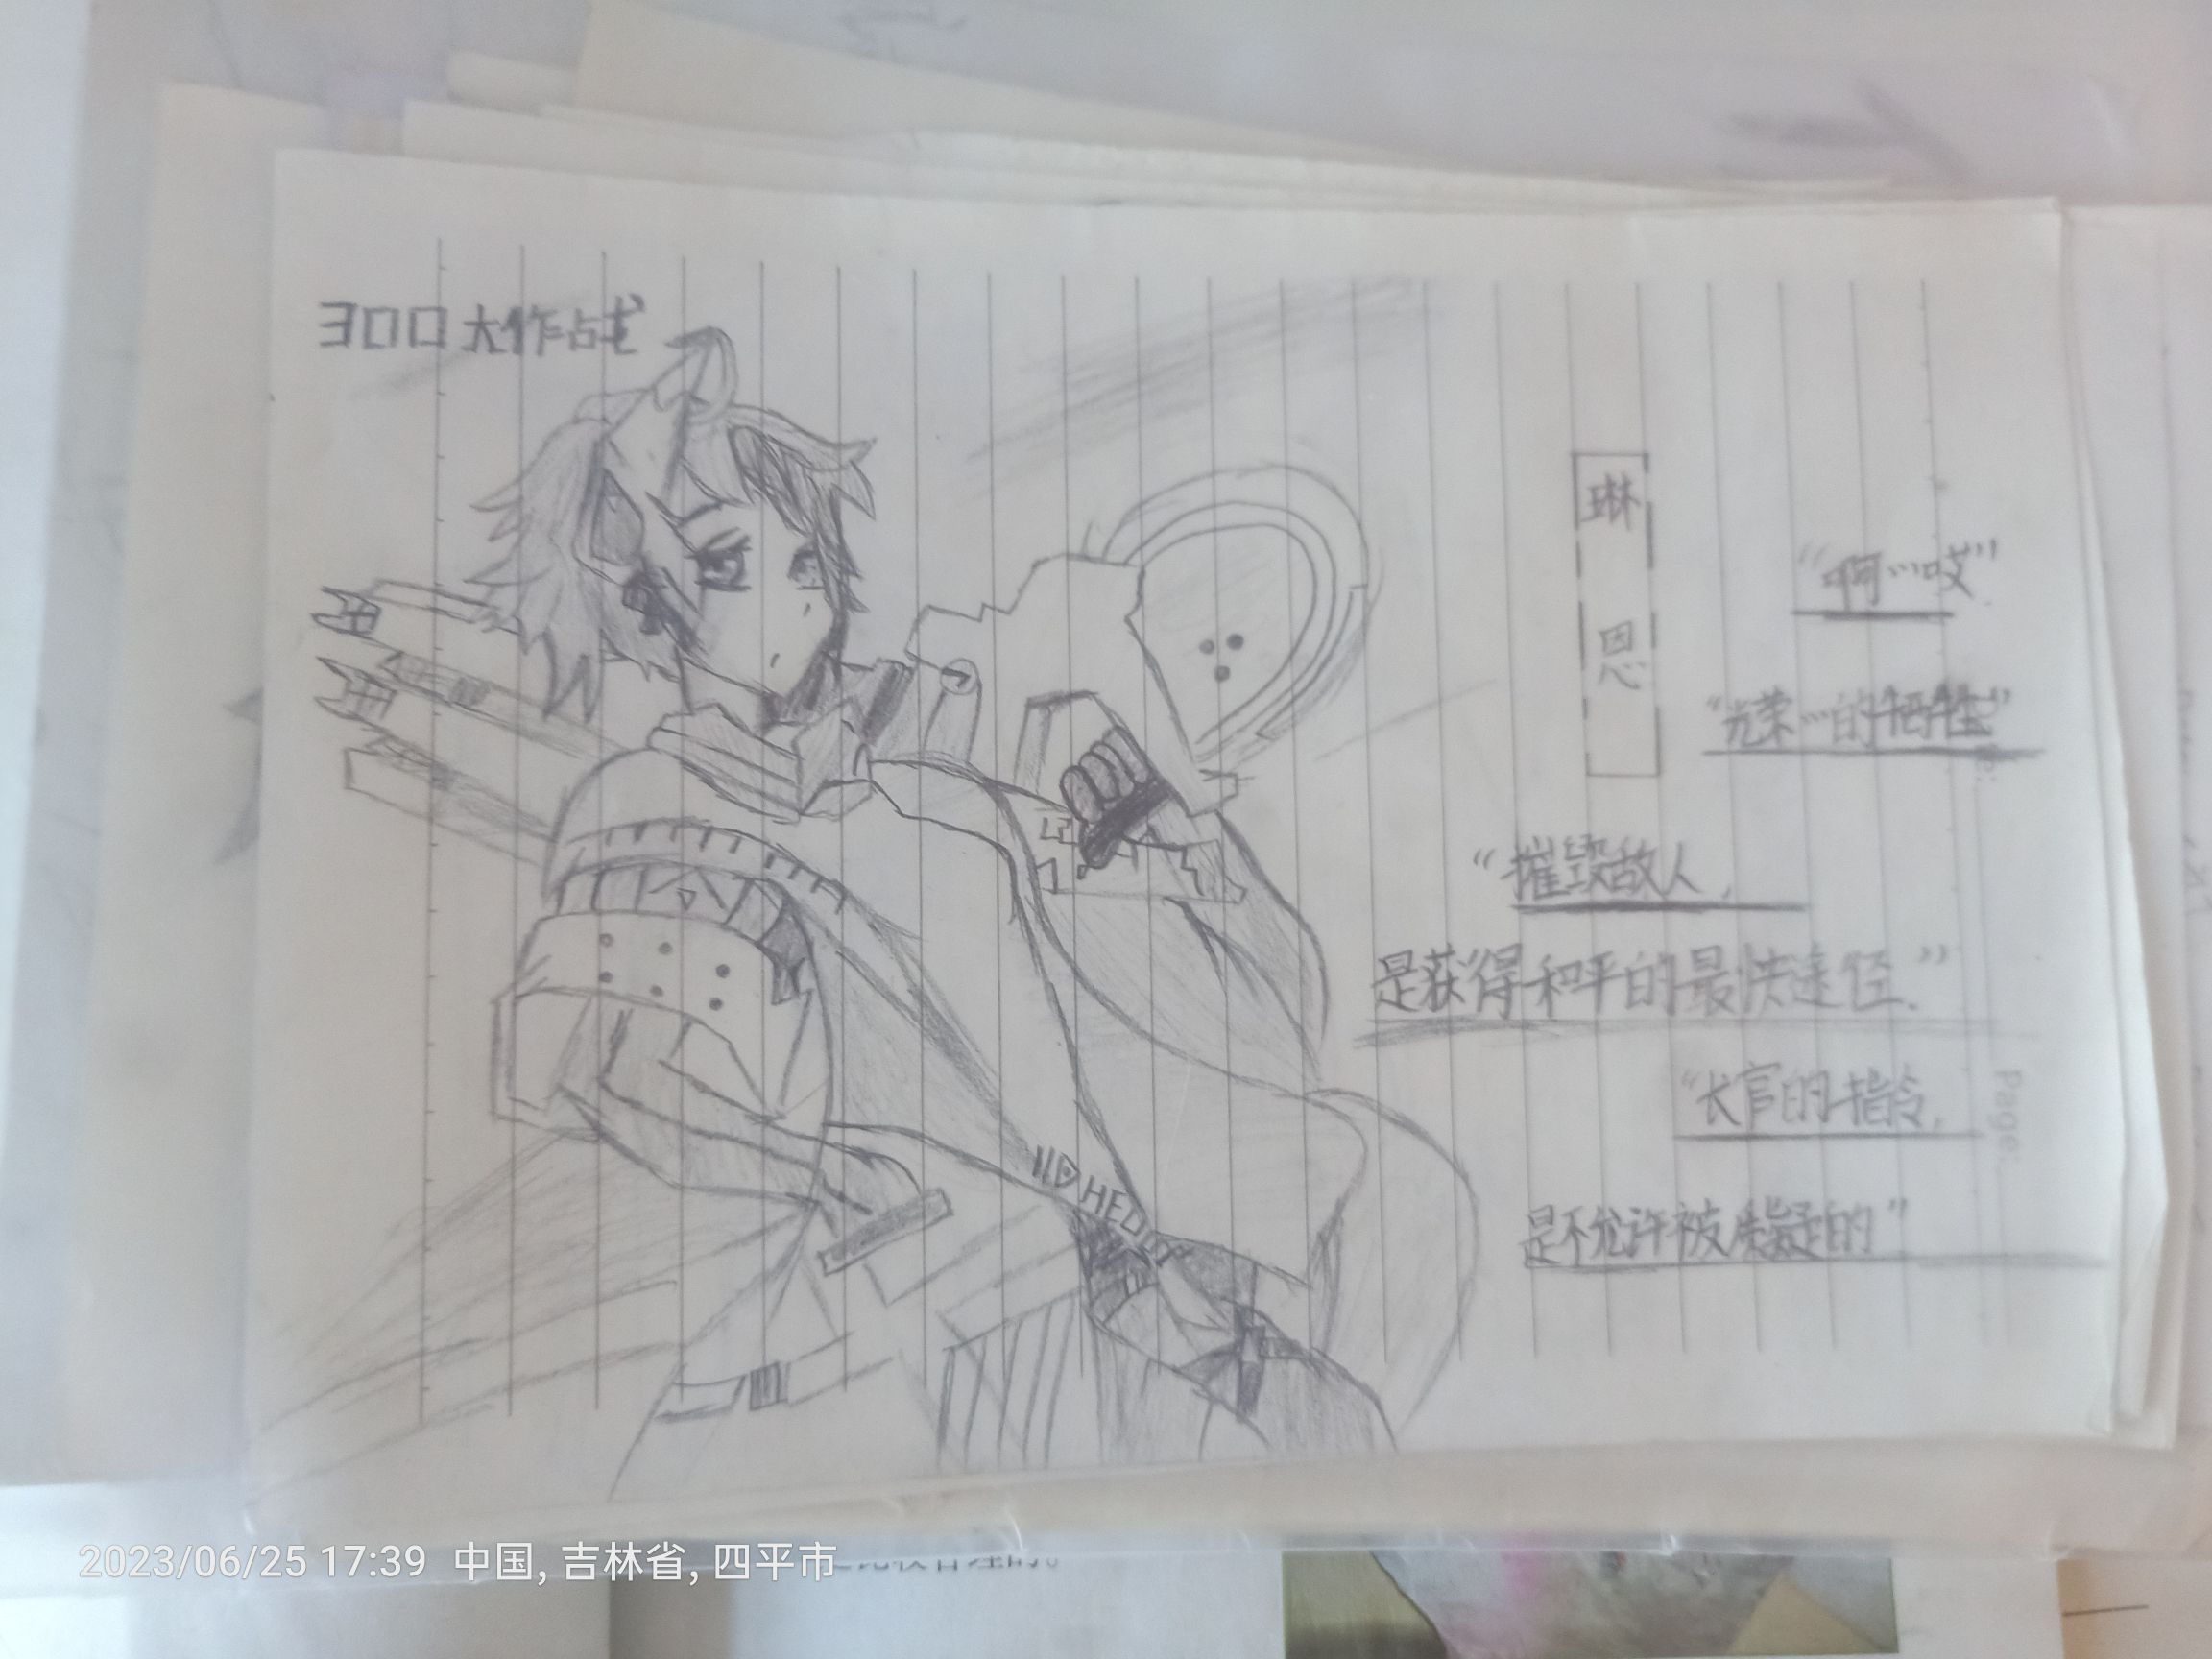 300大作战
琳恩
“啊…哎”
“光荣…的牺牲”
“摧毁敌人,
是获得和平的最快途径.”
“长官的指令,
是不允许被质疑的”
HEO
Page
2023/06/25 17:39 中国, 吉林省, 四平市